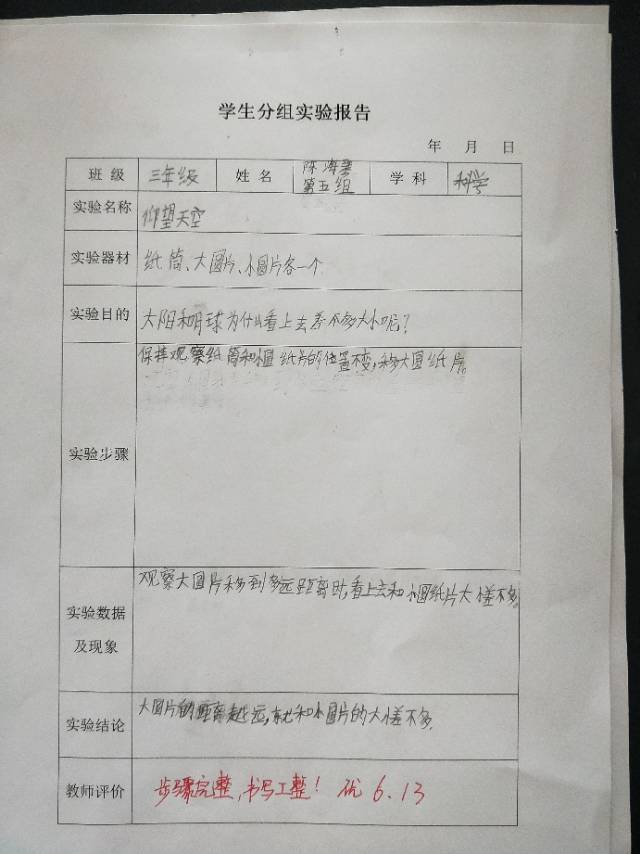 学生分组实验报告
年 月 日
班级 三年级 姓名 陈海 第五组 学科 科学
实验名称 仰望天空
实验器材 纸筒、大圆片、小圆片各一个
实验目的 太阳和月球为什么看上去差不多大小呢?
实验步骤 保持观察纸筒和小圆纸片的位置不变,移大圆纸片。
实验数据及现象 观察大圆片移到多远距离时,看上去和小圆纸片大小差不多。
实验结论 大圆片的距离越远,就和小圆片的大小差不多.
教师评价 步骤完整,书写工整! 优 6.13